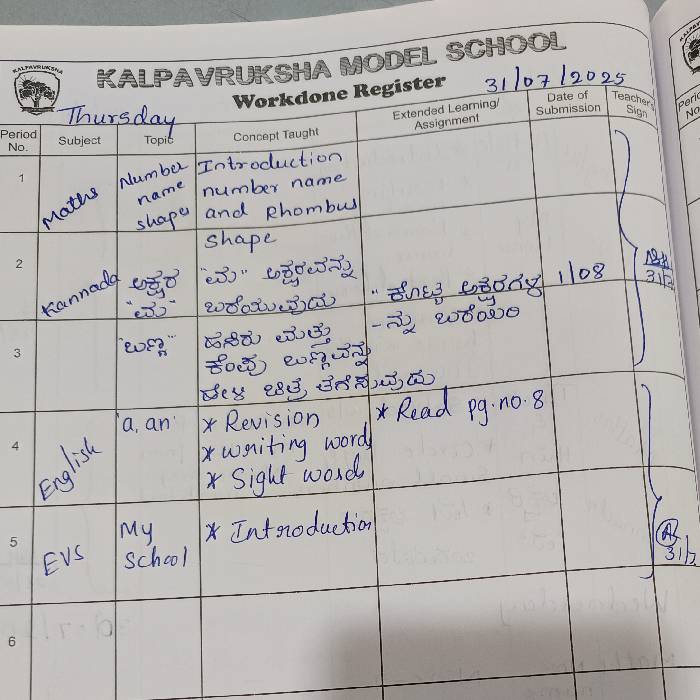 KALPAVRUKSHA
KALPAVRUKSHA MODEL SCHOOL
Workdone Register
31/07/2025
Thursday
Period No.
Subject
Topic
Concept Taught
Extended Learning/ Assignment
Date of Submission
Teacher's Sign
1
Maths
Number name shape
Introduction
number name
and Rhombus
shape
2
Kannada
ಅಕ್ಷರ
"ಮ"
"ಮ" ಅಕ್ಷರವನ್ನು
ಬರೆಯುವುದು
"ಕೊಟ್ಟ ಅಕ್ಷರಗಳ
-ನ್ನು ಬರೆಯಿರಿ
1/08
31/7
3
"ಬಣ್ಣ"
ಹಸಿರು ಮತ್ತು
ಕೆಂಪು ಬಣ್ಣವನ್ನು
ಹೇಳಿ ಚಿತ್ರ ತೆಗೆಸುವುದು
4
English
a, an
* Revision
* writing words
* Sight words
* Read pg.no.8
5
EVS
My
School
* Introduction
31/7
6